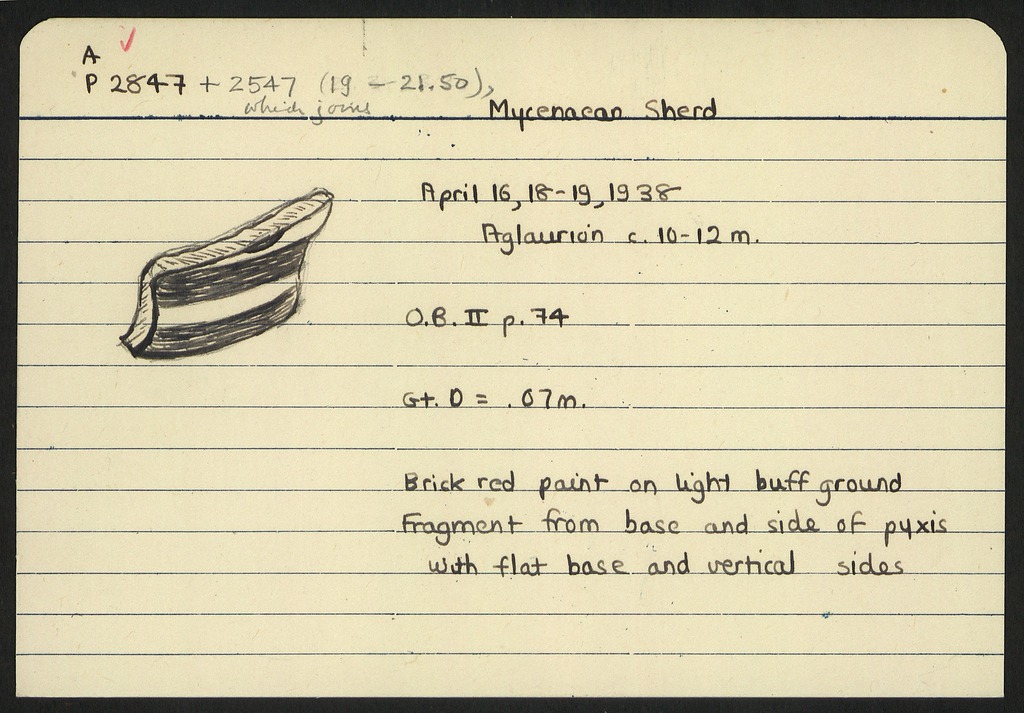 A
P 2847 + 2547 (19 – 21.50),
which joins
Mycenaean Sherd
April 16, 18-19, 1938
Aglaurion c. 10-12 m.
O.B. II p. 74
Gt. D = .07m.
Brick red paint on light buff ground
Fragment from base and side of pyxis
with flat base and vertical sides